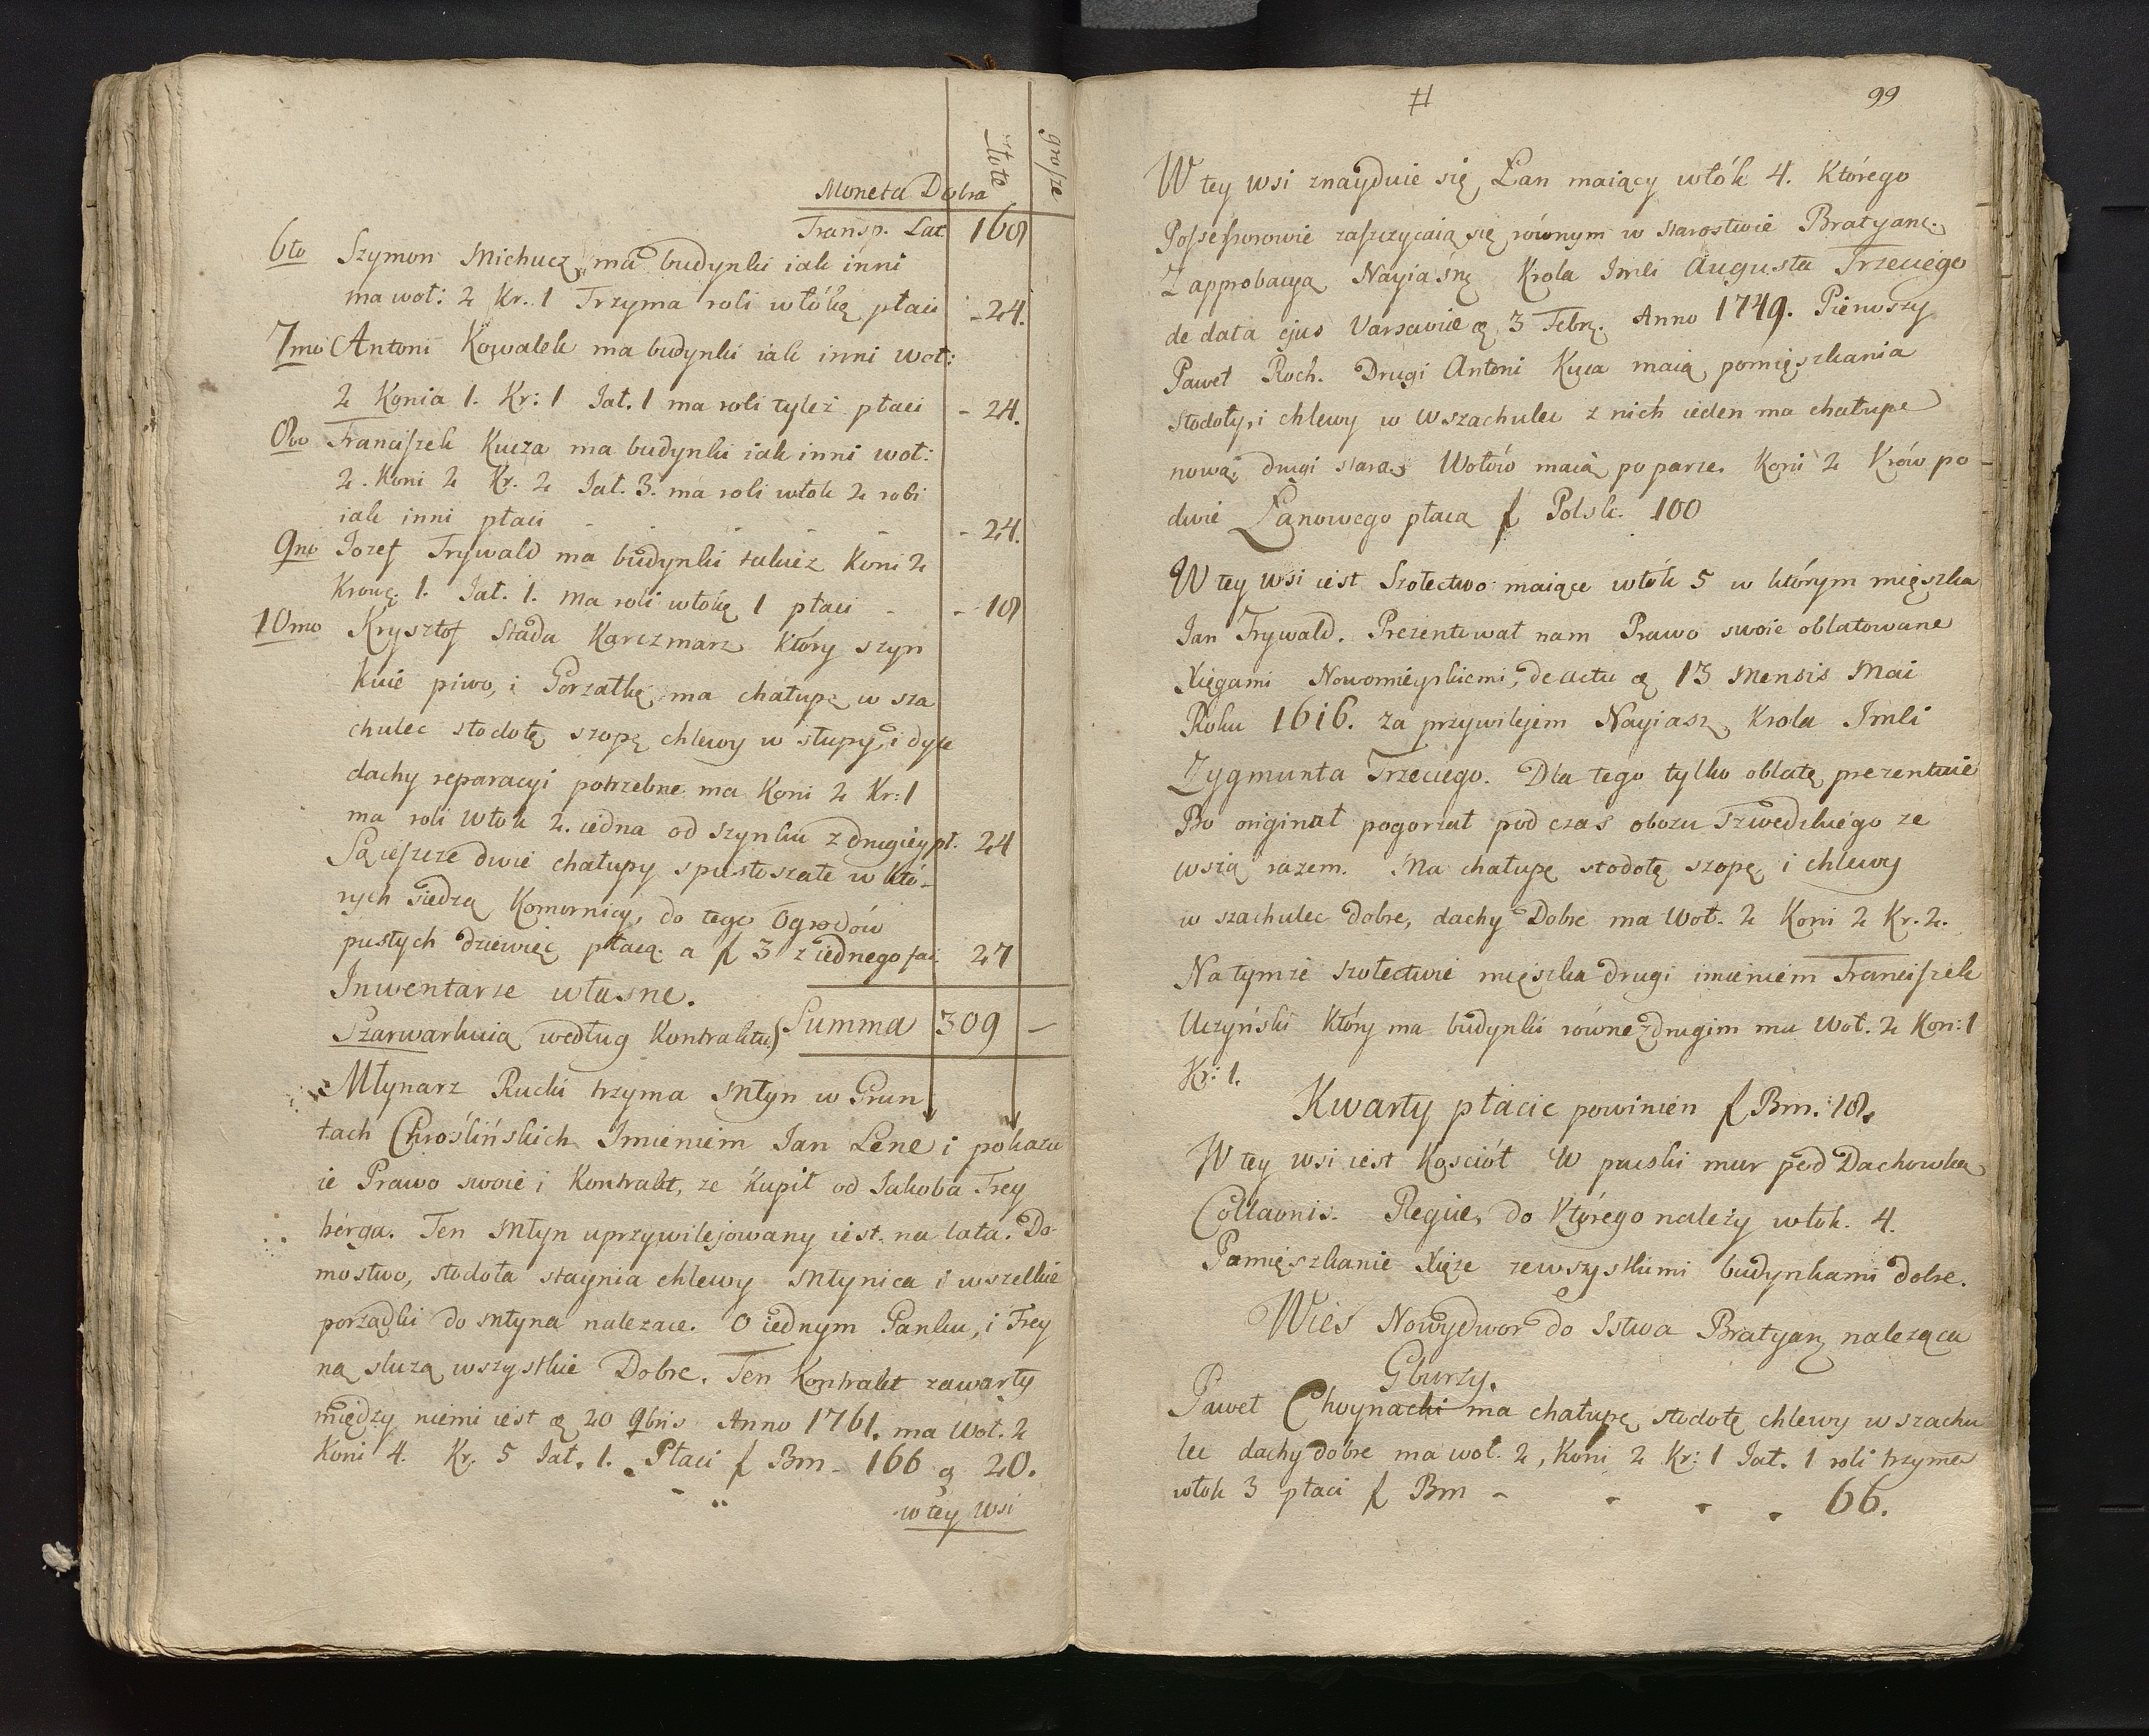 złote
grosze
Moneta Dobra
Transp. Lat. 168
6to Szymon Michucz, ma budynki iak inni
ma woł: 2 Kr. 1 Trzyma roli włókę płaci - 24.
7mo Antoni Kowalek ma budynki iak inni woł:
2 Konia 1. Kr: 1 Jał. 1 ma roli tyleż płaci - 24.
8vo Franciszek Kucza ma budynki iak inni woł:
2. Koni 2 Kr. 2 Jał. 3. ma roli włok 2 robi
iak inni płaci - - - 24.
9no Jozef Frywald ma budynki takież Koni 2
Krowę. 1. Jał. 1. ma roli włokę 1 płaci - - 18
10mo Krysztof Stada Karczmarz który szyn
kuie piwo, i Gorzałkę, ma chałupę w sza
chulec stodołę szopę chlewy w słupy, i dyle
dachy reparacyi potrzebne ma Koni 2 Kr: 1
ma roli Włok 2. iedna od szynku z drugiey pł. 24
Są ieszcze dwie chałupy spustoszałe w któ-
rych siedzą Komornicy, do tego Ogrodów
pustych dziewięć płacą. a f 3 z iednego fac. 27
Inwentarze własne.
Szarwarkuią według Kontraktu) Summa 309 -
Młynarz Rucki trzyma Młyn w Grun
tach Chroślińskich Imieniem Jan Lene i pokazu
ie Prawo swoie i Kontrakt, ze Kupił od Jakoba Frey
berga. Ten Młyn uprzywilejowany iest na lata. Do-
mostwo, stodoła staynia chlewy Młynica i wszelkie
porządki do młyna nalezące. O iednym Ganku, i Frey
ną służą wszystkie Dobre. Ten Kontrakt zawarty
między niemi iest d. 20 9bris Anno 1761. ma Woł. 2
Koni 4. Kr. 5 Jał. 1. Płaci f Bm - 166 g 20.
w tey wsi
99
W tey wsi znayduie się Łan maiący włók 4. Którego
Possessorowie zaszczycaią się rownym w starostwie Bratyanc.
Z approbacyą Nayiaśnę Krola Imli Augusta Trzeciego
de data ejus Varsaviæ d. 3 Febrę. Anno 1749. Pierwszy
Paweł Roch. Drugi Antoni Kuca maią pomięszkania
stodoły, i chlewy w Wszachulec z nich ieden ma chałupe
nową, drugi starą, Wołów maią po parze. Koni 2 Krów po-
dwie Łanowego płacą f Polsk. 100
W tey wsi iest Szołectwo maiące włók 5 w którym mięszka
Jan Frywald. Prezentował nam Prawo swoie oblatowane
Xięgami Nowomieyskiemi, de actu d. 13 Mensis Mai
Roku 1616. za przywilejem Nayiasz. Krola Imli
Zygmunta Trzeciego. Dla tego tylko oblatę prezentuie
Bo original pogorzał pod czas obozu Szwedzkiego ze
wsią razem. Ma chałupę stodołę szopę, i chlewy
w szachulec dobre, dachy Dobre ma Woł. 2 Koni 2 Kr. 2.
Na tymże szołectwie mięszka drugi imieniem Franciszek
Uczyński który ma budynki równe z drugim ma Woł. 2 Kon: 1
Kr: 1.
Kwarty płacić powinien f Bm. 18.
W tey wsi iest Kosciół W pruski mur pod Dachowką
Collaonis. Regiæ, do Którego należy włok. 4.
Pamięszkanie Xięże ze wszystkiemi budynkami dobre.
Wieś Nowydwor do Sstwa Bratyanę należąca
Gburzy.
Paweł Choynacki ma chałupę, stodołę chlewy w szachu
lec dachy dobre ma woł. 2, Koni 2 Kr: 1 Jał. 1 roli trzyma
włok 3 płaci f Bm - - - - 66.